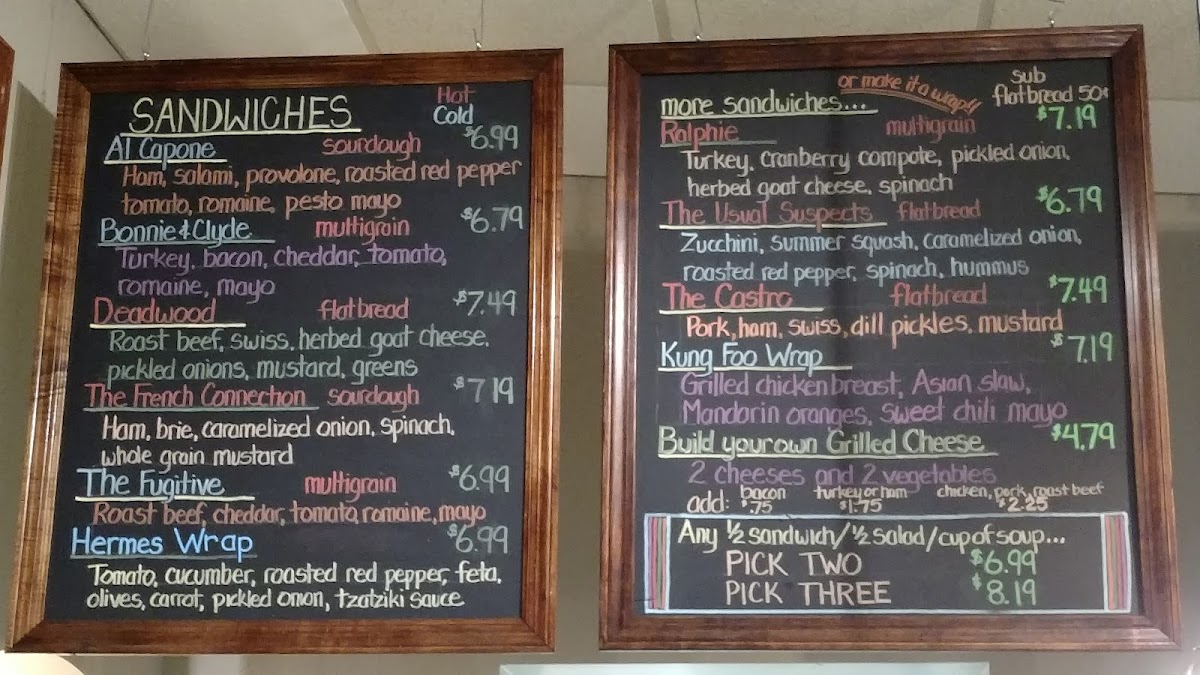 SANDWICHES Hot
Cold
Al Capone sourdough $6.99
Ham, salami, provolone, roasted red pepper
tomato, romaine, pesto mayo
Bonnie & Clyde multigrain $6.79
Turkey, bacon, cheddar, tomato,
romaine, mayo
Deadwood flatbread $7.49
Roast beef, swiss, herbed goat cheese,
pickled onions, mustard, greens
The French Connection sourdough $7 19
Ham, brie, caramelized onion, spinach,
whole grain mustard
The Fugitive multigrain $6.99
Roast beef, cheddar, tomato, romaine, mayo
Hermes Wrap $6.99
Tomato, cucumber, roasted red pepper, feta,
olives, carrot, pickled onion, tzatziki sauce
more sandwiches... or make it a wrap!! sub
flatbread 50¢
Ralphie multigrain $7.19
Turkey, cranberry compote, pickled onion,
herbed goat cheese, spinach
The Usual Suspects flatbread $6.79
Zucchini, summer squash, caramelized onion,
roasted red pepper, spinach, hummus
The Castro flatbread $7.49
Pork, ham, swiss, dill pickles, mustard
Kung Foo Wrap $7.19
Grilled chicken breast, Asian slaw,
Mandarin oranges, sweet chili mayo
Build your own Grilled Cheese $4.79
2 cheeses and 2 vegetables
add: bacon $.75 turkey or ham $1.75 chicken, pork, roast beef $2.25
Any ½ sandwich/½ salad/cup of soup...
PICK TWO $6.99
PICK THREE $8.19